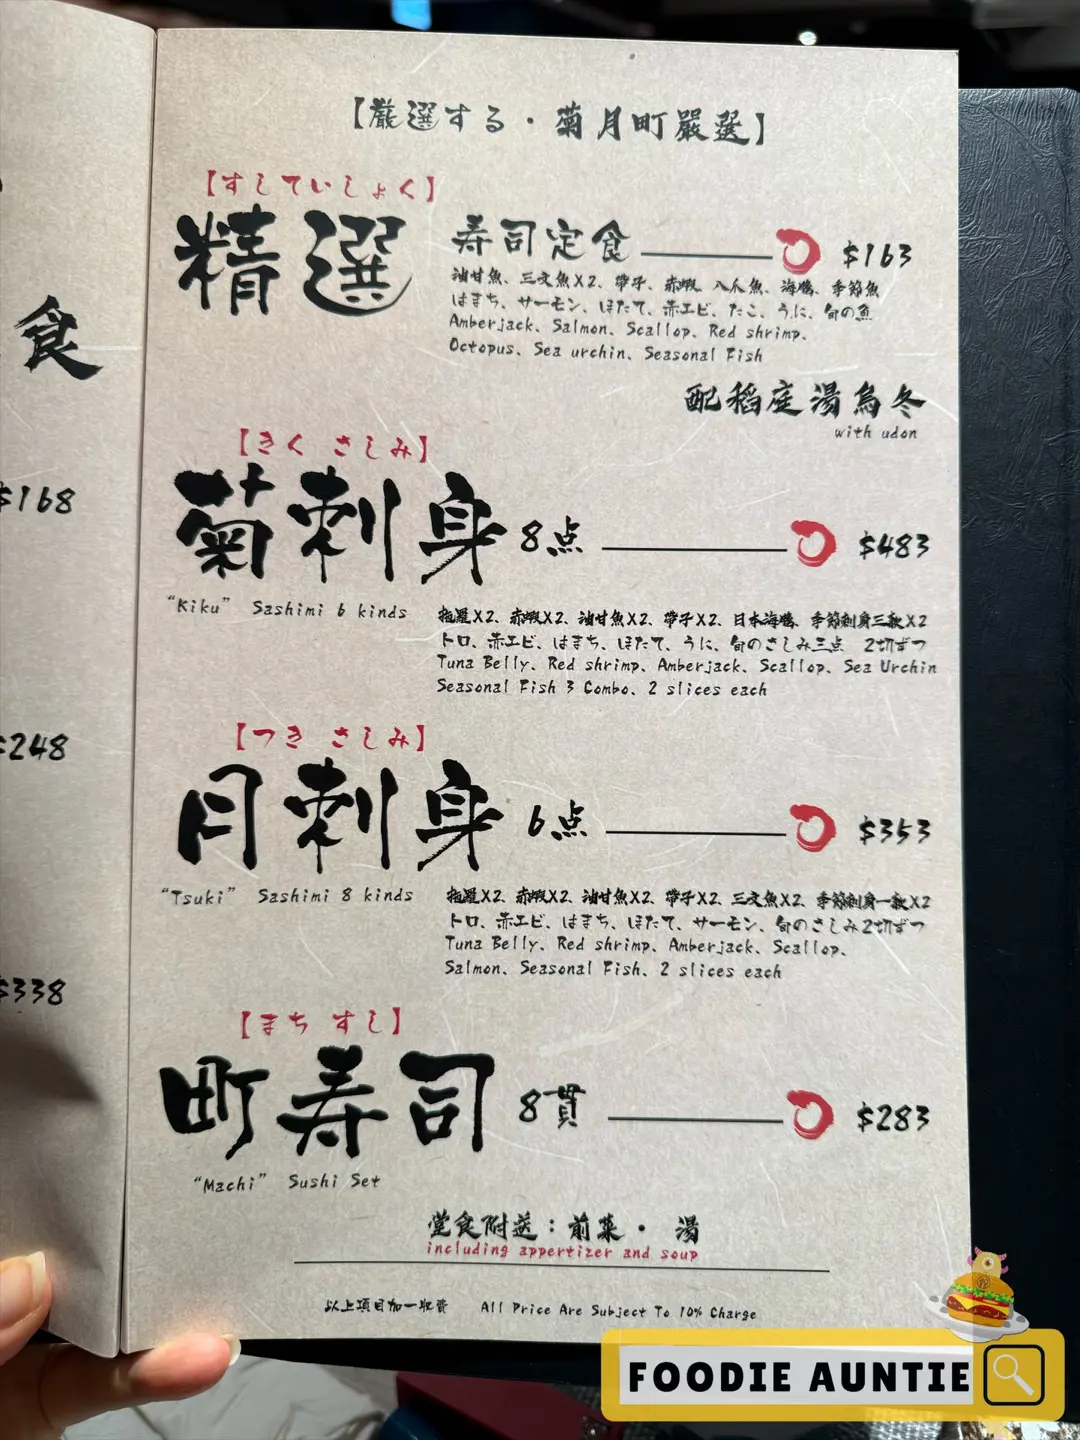 食
$168
$248
$338
【厳選する・菊月町嚴選】
【すしていしょく】
精選 寿司定食 $163
油甘魚、三文魚X2、帶子、赤蝦、八爪魚、海膽、季節魚
はまち、サーモン、ほたて、赤エビ、たこ、うに、旬の魚
Amberjack、Salmon、Scallop、Red shrimp、
Octopus、Sea urchin、Seasonal Fish
配稻庭湯烏冬
with udon
【きく さしみ】
菊刺身 8点 $483
"Kiku" Sashimi 6 kinds
拖羅X2、赤蝦X2、油甘魚X2、帶子X2、日本海膽、季節刺身三款X2
トロ、赤エビ、はまち、ほたて、うに、旬のさしみ三点 2切ずつ
Tuna Belly、Red shrimp、Amberjack、Scallop、Sea Urchin
Seasonal Fish 3 Combo、2 slices each
【つき さしみ】
月刺身 6点 $353
"Tsuki" Sashimi 8 kinds
拖羅X2、赤蝦X2、油甘魚X2、帶子X2、三文魚X2、季節刺身一款X2
トロ、赤エビ、はまち、ほたて、サーモン、旬のさしみ2切ずつ
Tuna Belly、Red shrimp、Amberjack、Scallop、
Salmon、Seasonal Fish、2 slices each
【まち すし】
町寿司 8貫 $283
"Machi" Sushi Set
堂食附送：前菜・ 湯
including appertizer and soup
以上項目加一收費 All Price Are Subject To 10% Charge
FOODIE AUNTIE